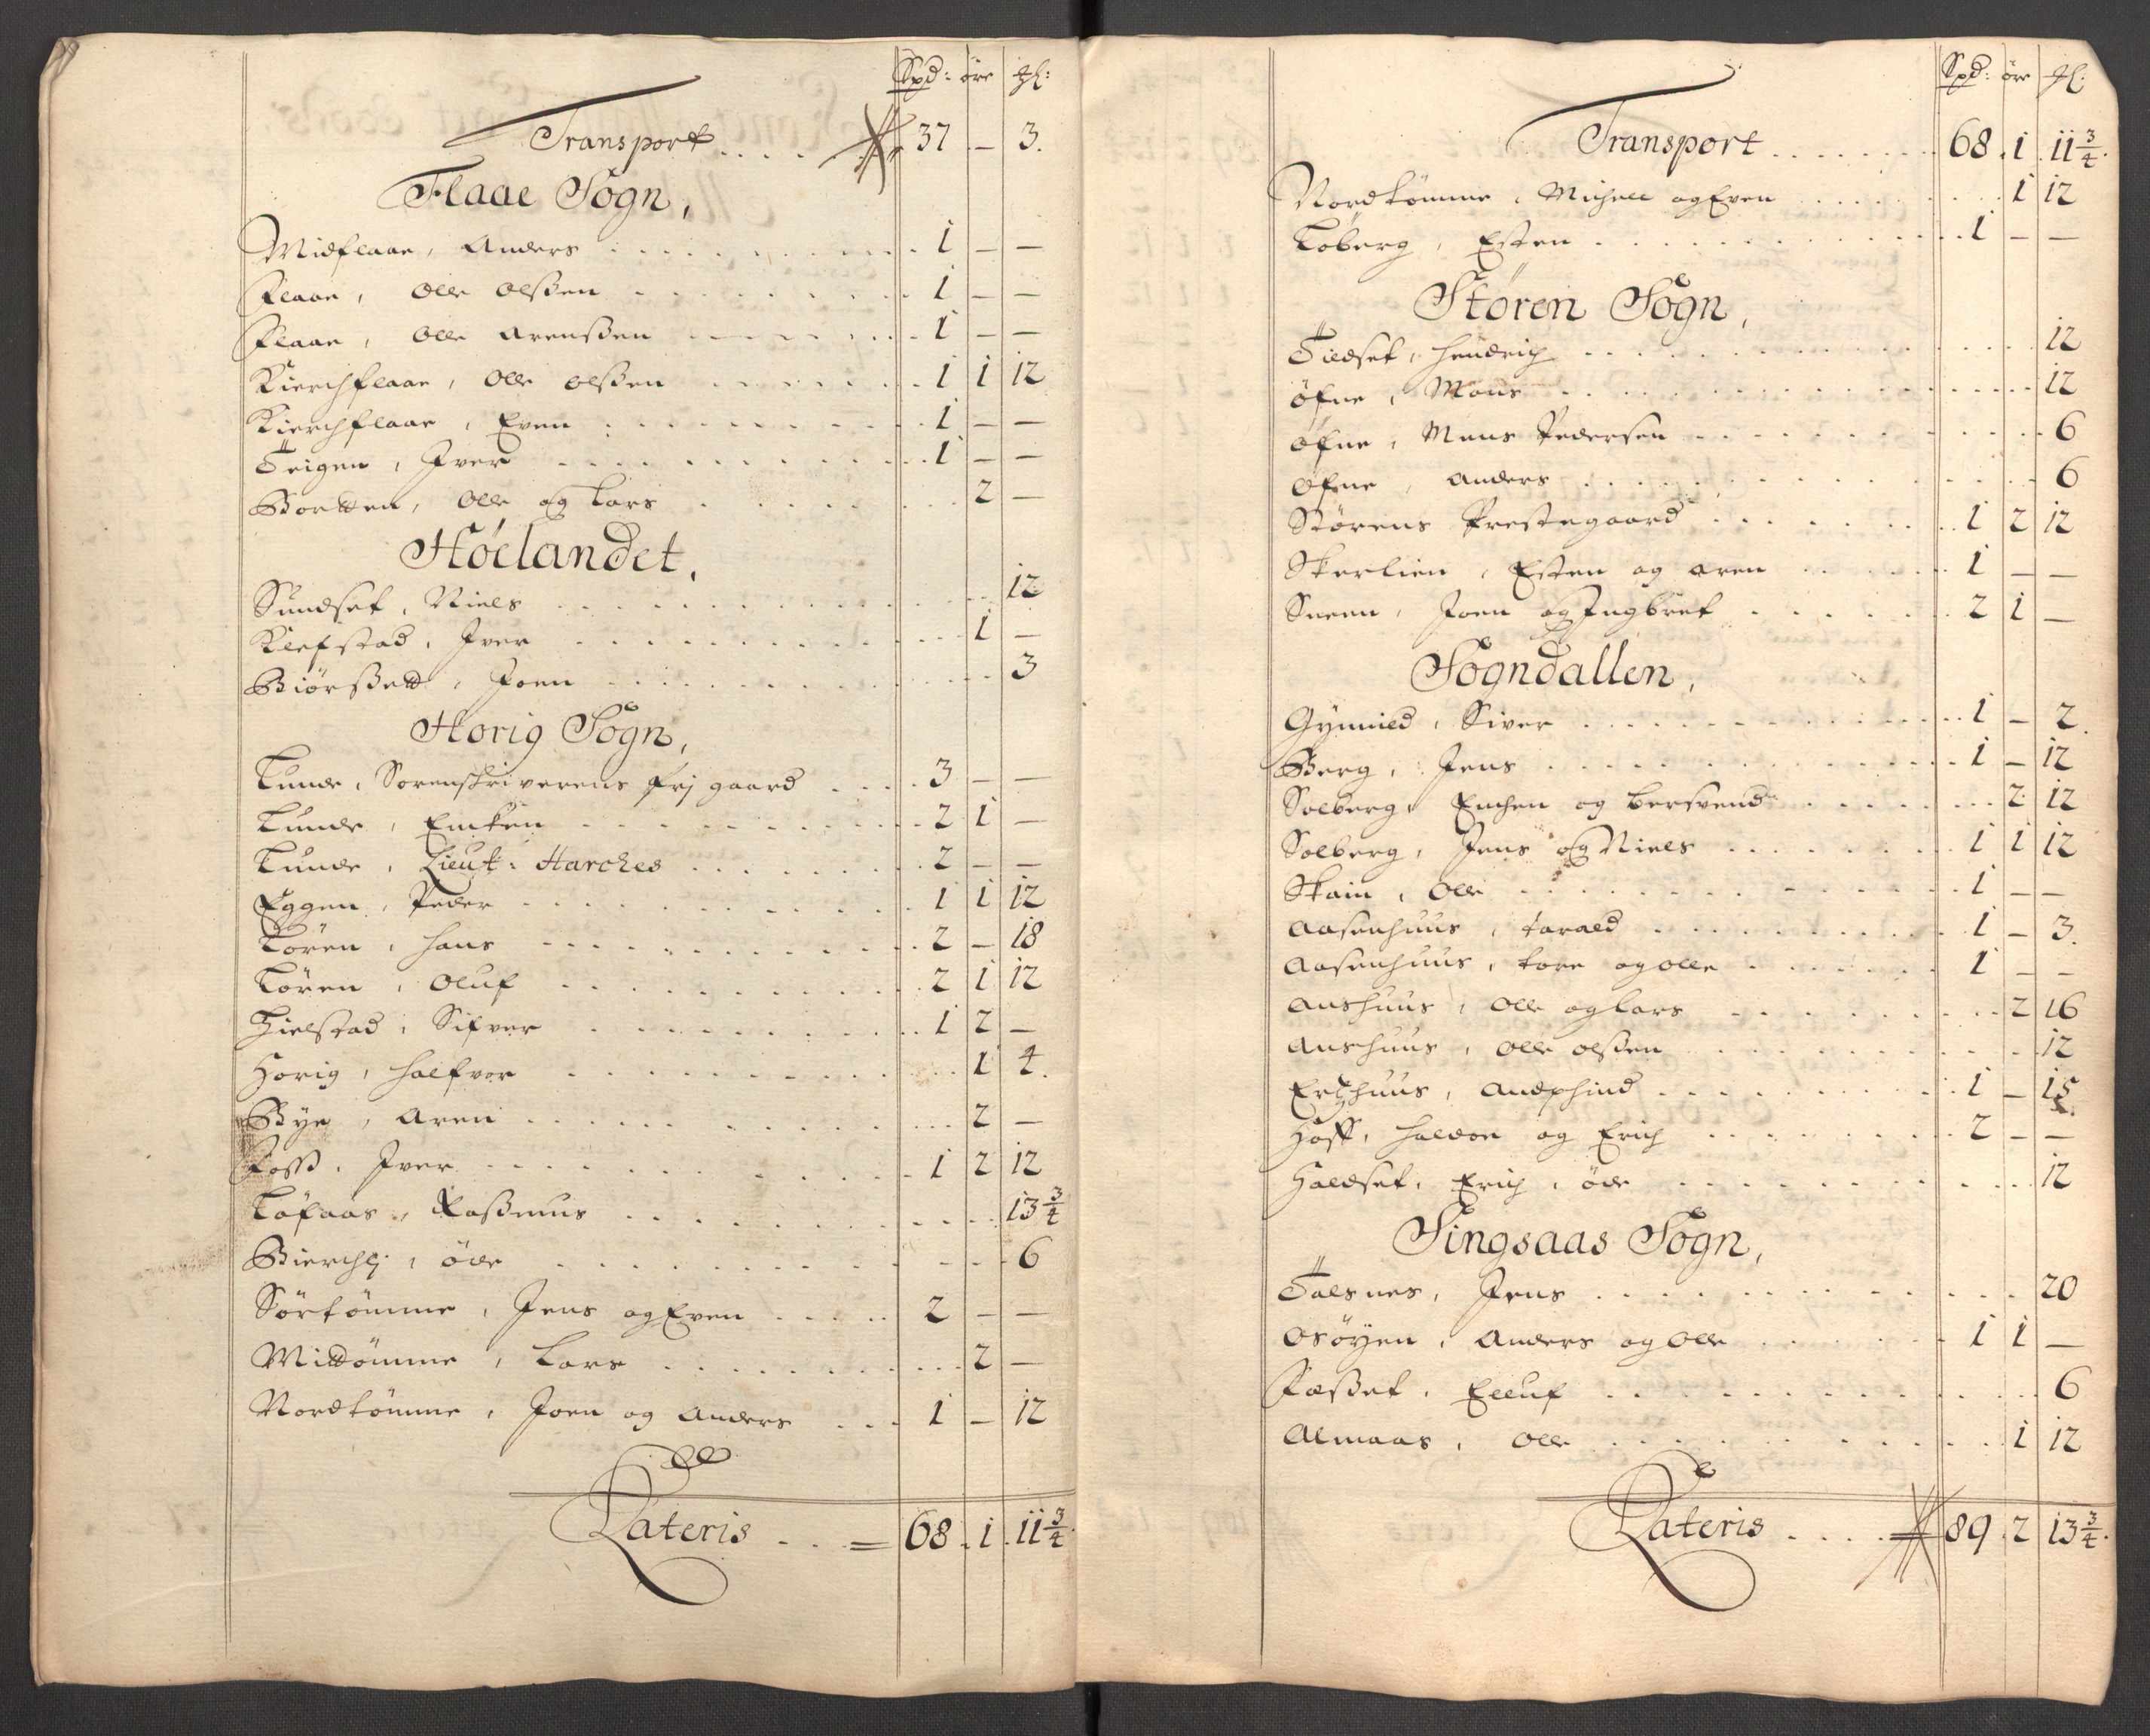 Spd: öre
Transport .... 37 – 3.
Flaae Sogn,
Midflaae, Anders ..... 1 – –
Flaae, Olle Olßen ..... 1 – –
Flaae, Olle Arenßen ..... 1 – –
Kierchflaae, Olle Olßen ..... 1 1 12
Kierchflaae, Even ..... 1 – –
Teigen, Iver ..... 1 – –
Bortten, Olle og Lars ..... 2 –
Höelandet,
Sundset, Niels ..... 12
Klefstad, Iver ..... 1 –
Biörßett, Joen ..... 3
Horig Sogn,
Lunde, Sorenskriverens frj gaard .... 3 – –
Lunde, Encken ..... 2 1 –
Lunde, Lieut: Harches ..... 2 – –
Eggen, Peder ..... 1 1 12
Lören, Hans ..... 2 – 18
Lören, Oluf ..... 2 1 12
Hielstad, Sifver ..... 1 2 –
Horig, Halfvor ..... 1 4.
Bye, Aren ..... 2 –
Foss, Iver ..... 1 2 12
Löfaas, Raßmus ..... 13 3/4
Bierchlj, öde ..... 6
Sörtömme, Jens og Even ..... 2 – –
Midtömme, Lars ..... 2 –
Nordtömme, Joen og Anders ... 1 – 12
Lateris ... = 68. 1. 11 3/4.
Spd: öre
Transport ..... 68. 1. 11 3/4.
Nordtömme, Michell og Even ..... 1 12
Löberg, Esten ..... 1 – –
Stören Sogn,
Tildset, Hendrich ..... 12
Öfne, Mons ..... 12
Öfne, Mons Pedersen ..... 6
Öfne, Anders ..... 6
Störens Prestegaard ..... 1 2 12
Skerlien, Esten og Aren ..... 1 – –
Sneen, Joen og Ingbret ..... 2 1 –
Sogndallen,
Gynnild, Siver ..... 1 – 2.
Berg, Jens ..... 1 – 12
Solberg, Enchen og Bersvend ..... 2 12
Solberg, Jens og Niels ..... 1 1 12
Skain, Olle ..... 1 – –
Aasenhuus, Tarald ..... 1 – 3.
Aasenhuus, Tore og Olle ..... 1 – –
Anshuus, Olle og Lars ..... 2 16
Anshuus, Olle Olßen ..... 12
Ertzhuus, Andphind ..... 1 – 15
Hoff, Haldor og Erich ..... 2 – –
Haldset, Erich, öde ..... 12
Singsaas Sogn,
Talsnes, Jens ..... 20
Osöyen, Anders og Olle ..... 1 1 –
Foeßet, Elluf ..... 6
Almaas, Olle ..... 1 12
Lateris .... = 89. 2 13 3/4.